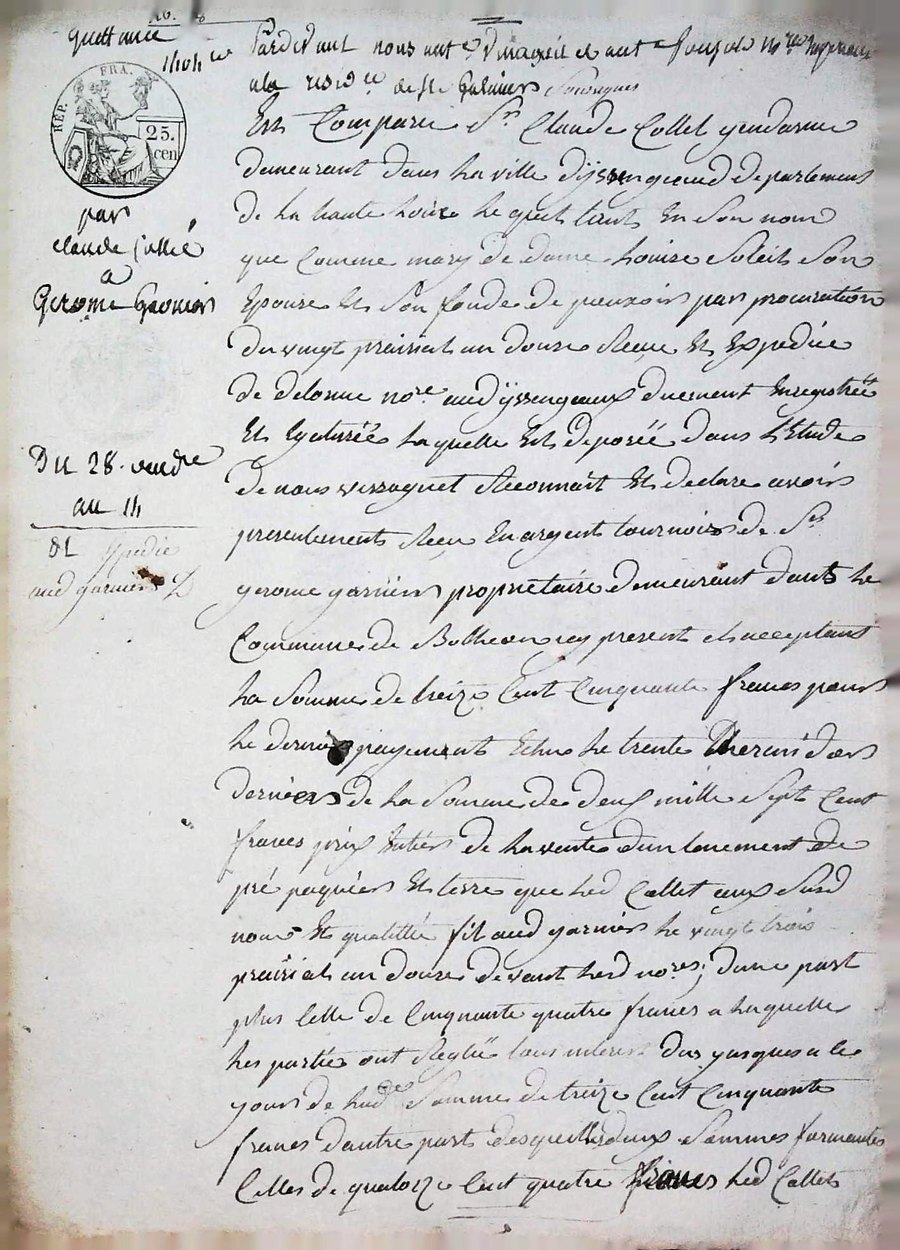 quittance
1404
RÉP. FRA.
25. cen
par
Claude Collet
a
Gerome Garnier
Du 28. vendre
an 14
expedié
aud garnier
Pardevant nous
a la reside de St Galmier Soussignés
Est Comparu Sr Claude Collet gendarme
demeurant dans la ville d'yssengeaud departement
de la haute Loire le quel tant En Son nom
que Comme mary de dame Louise Soleil Son
Epouse Et Son fondé de pouvoir par procuration
du vingt prairial an douze Reçue Et Expediée
de delorme nore aud yssengeaux duement Enregistrée
Et Legalisée Laquelle Est deposée dans L'Etude
de nous vissaguet Reconnait Et declare avoir
presentement Reçu En argent tournois de Sr
gerome garnier proprietaire demeurant dants le
Commune de Bothéon icy present et acceptant
La Somme de treize Cent Cinquante francs pour
le dernier payement Echu le trente Thermidor
dernier de la Somme de deux mille Sept Cent
francs prix Entier de la vente d'un tenement de
pré paquier Et terre que led Collet aux Susd
noms Et qualitée fit aud garnier le vingt trois
prairial an douze devant led nores; d'une part
plus Celle de Cinquante quatre francs a laquelle
les partie ont Reglée tous interest dus jusques a ce
jour de lad de Somme de treize Cent Cinquante
francs d'autre part desquelles deux Sommes formantes
Celles de quatorze Cent quatre francs led Collet